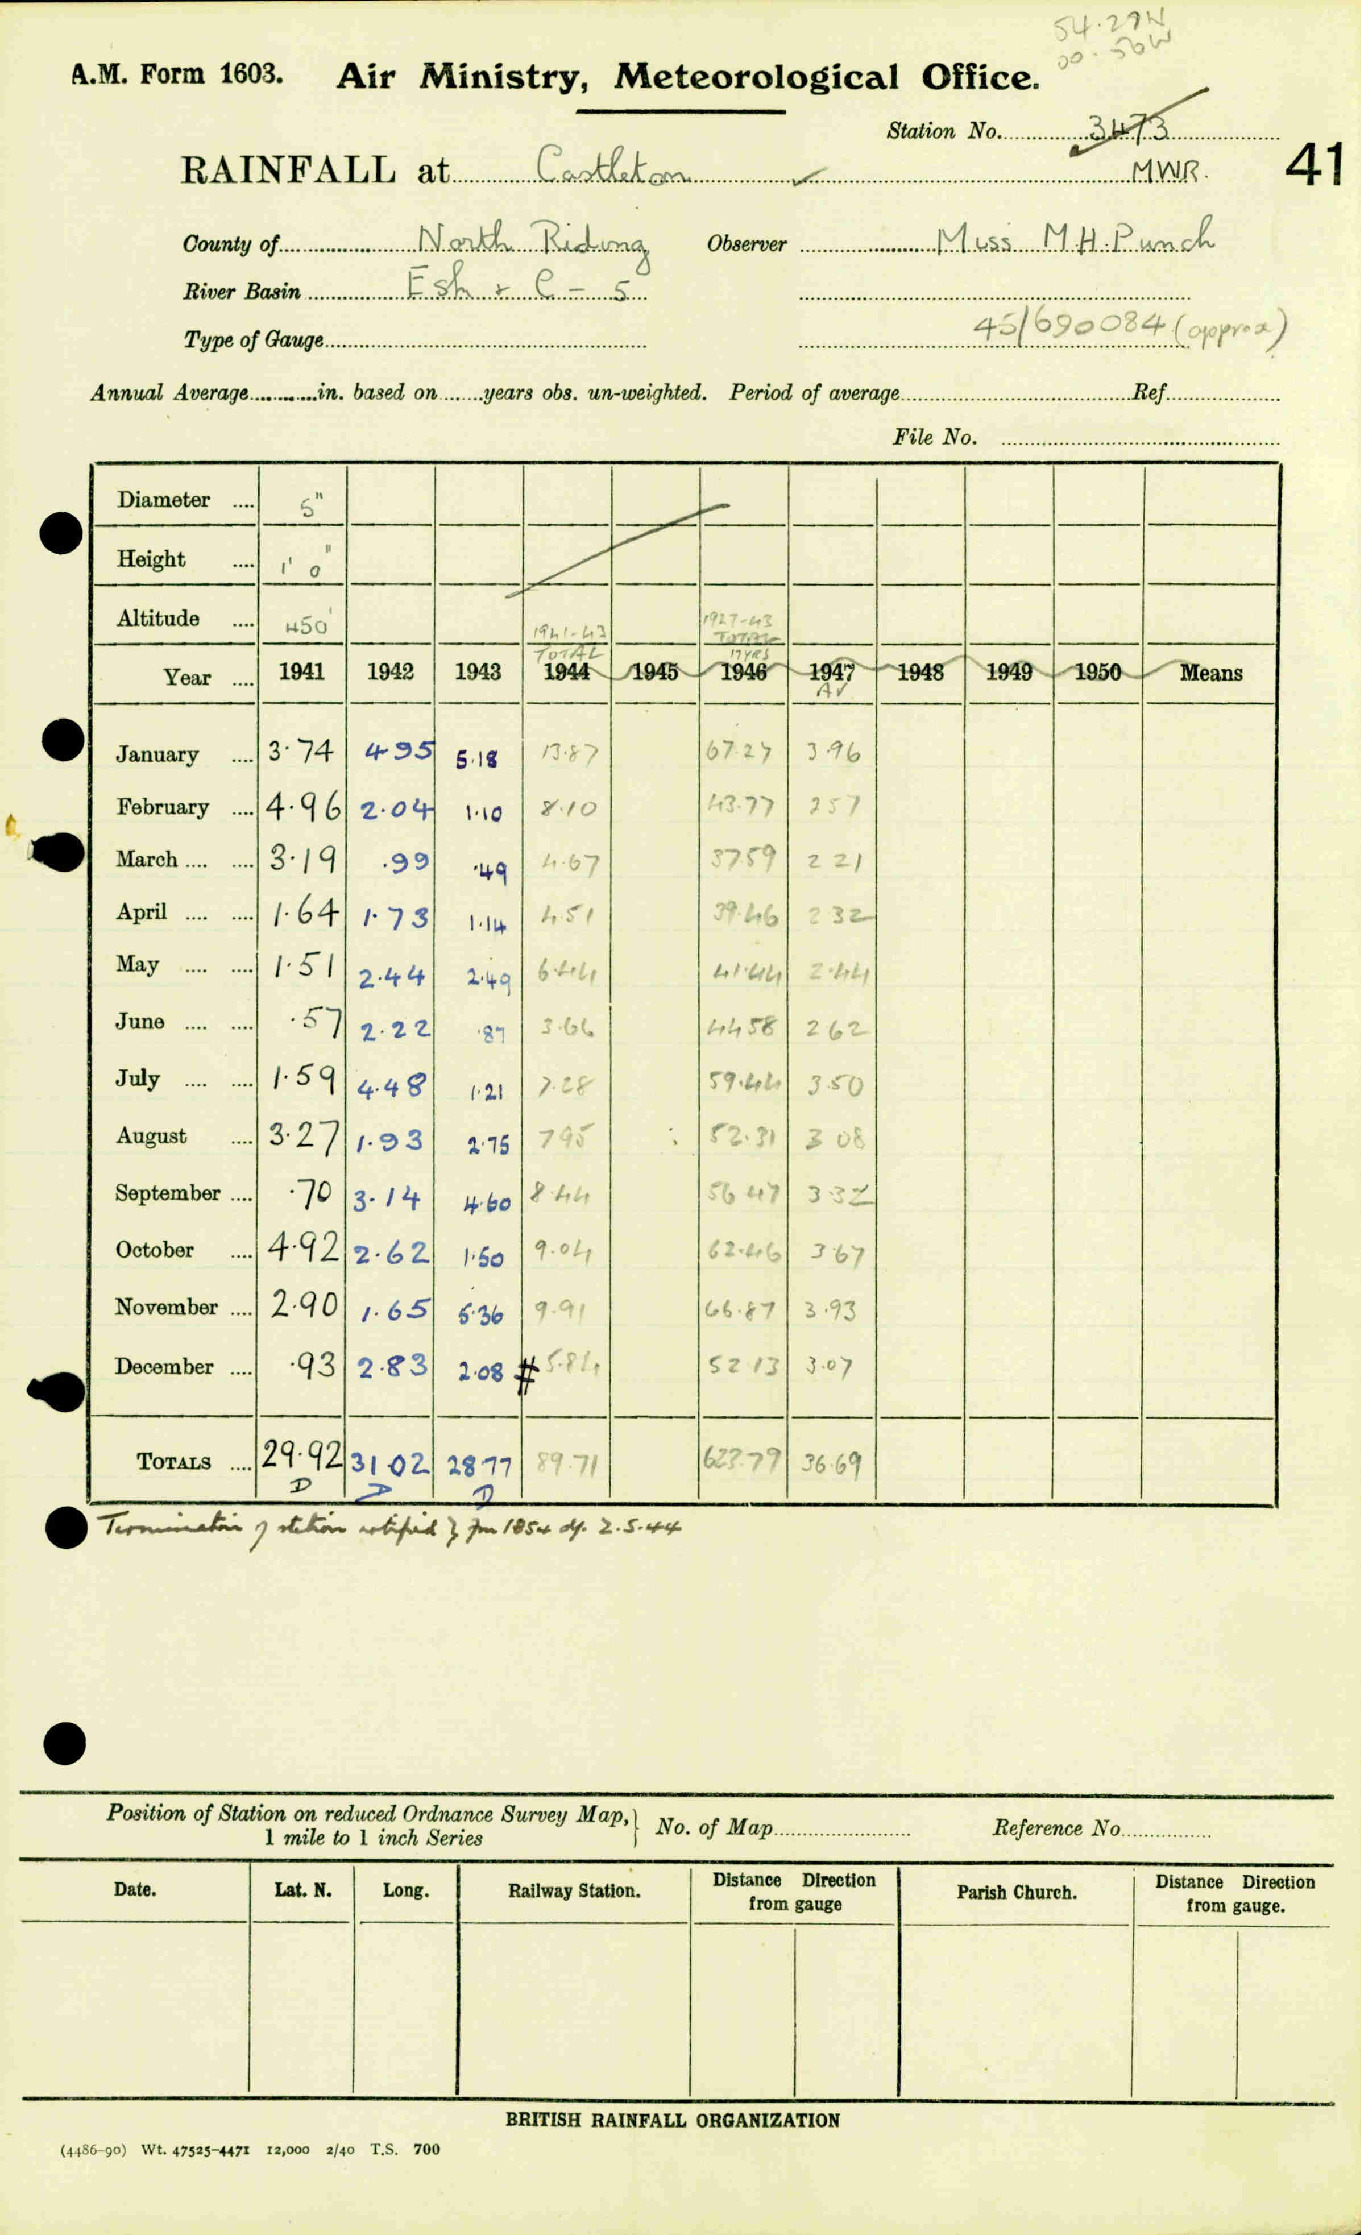 54.29N
00.50W
A.M. Form 1603. Air Ministry, Meteorological Office.
Station No. 3473
RAINFALL at Castleton MWR. 41
County of North Riding Observer Miss M.H. Punch
River Basin Esk + C - 5
Type of Gauge 45/690084 (approx)
Annual Average in. based on years obs. un-weighted. Period of average Ref.
File No.
Diameter .... 5"
Height .... 1' 0"
Altitude .... 450' 1941-43 1927-43
TOTAL TOTAL
17 YRS
Year .... 1941 1942 1943 1944 1945 1946 1947 1948 1949 1950 Means
AV
January .... 3.74 4.95 5.18 13.87 67.27 3.96
February .... 4.96 2.04 1.10 8.10 43.77 2.57
March .... .... 3.19 .99 .49 4.67 37.59 2 21
April .... .... 1.64 1.73 1.14 4.51 39.46 2 32
May .... .... 1.51 2.44 2.49 6.44 41.44 2.44
June .... .... .57 2.22 .87 3.66 44.58 2 62
July .... .... 1.59 4.48 1.21 7.28 59.44 3.50
August .... 3.27 1.93 2.75 7 95 52.31 3 08
September .... .70 3.14 4.60 8.44 56 47 3 32
October .... 4.92 2.62 1.50 9.04 62.46 3 67
November .... 2.90 1.65 5.36 9.91 66.87 3.93
December .... .93 2.83 2.08 # 5.84 52 13 3.07
TOTALS .... 29.92 31.02 28.77 89.71 623.79 36.69
D D D
Termination of station notified } fm 1854 df. 2.5.44
Position of Station on reduced Ordnance Survey Map, } No. of Map Reference No.
1 mile to 1 inch Series
Date. Lat. N. Long. Railway Station. Distance Direction from gauge Parish Church. Distance Direction from gauge.
BRITISH RAINFALL ORGANIZATION
(4486-90) Wt. 47525-4471 12,000 2/40 T.S. 700